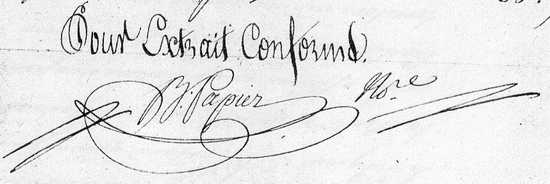 Pour Extrait Conforme.
J. Papier No.re